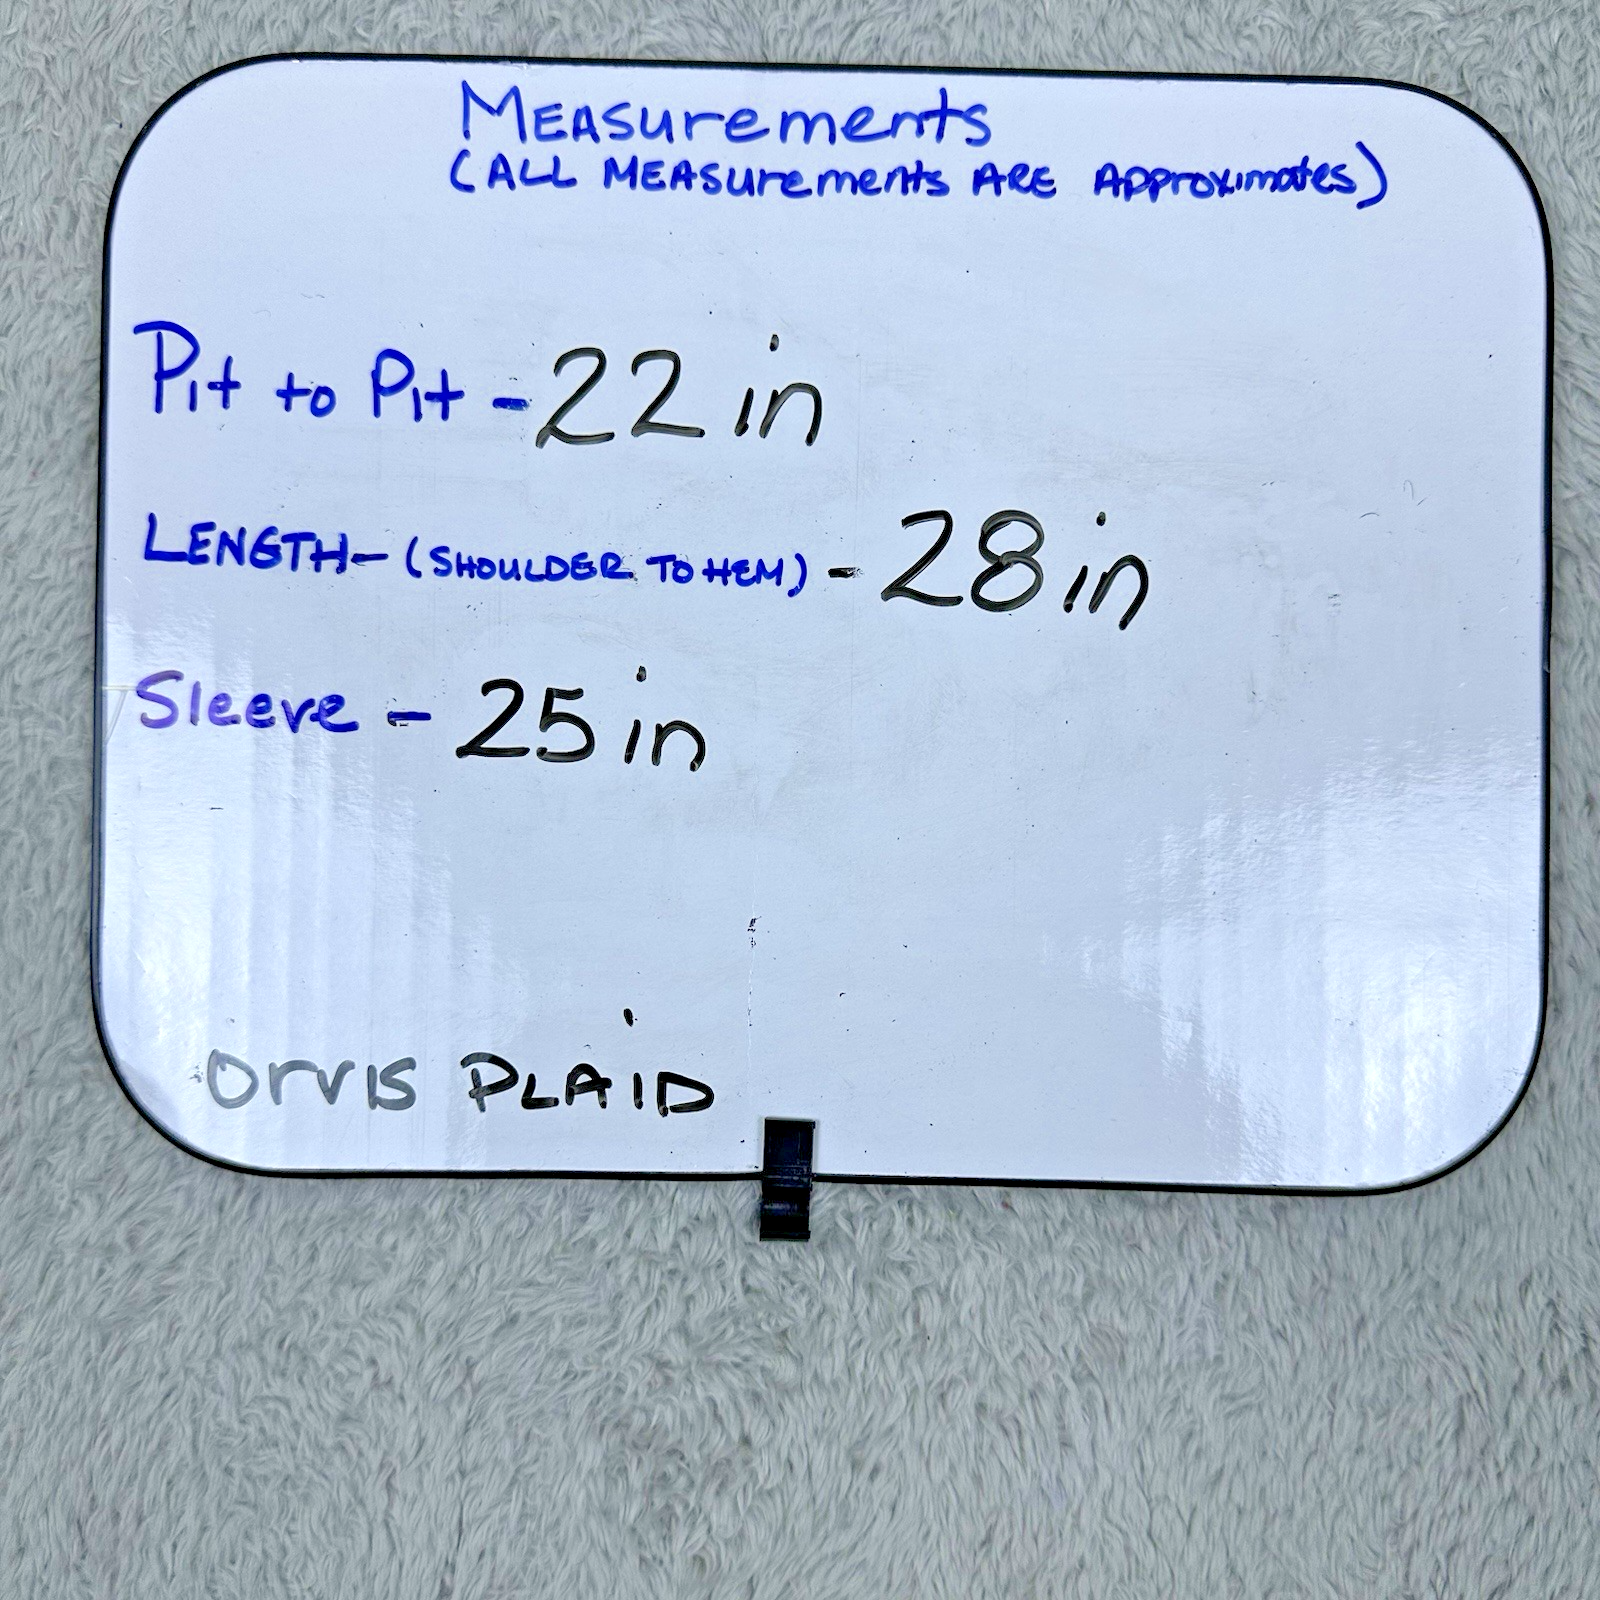 MEASurements
(ALL MEASurements ARE Approximates)
Pit to Pit - 22 in
LENGTH - (SHOULDER TO HEM) - 28 in
Sleeve - 25 in
OrvIS PLAiD